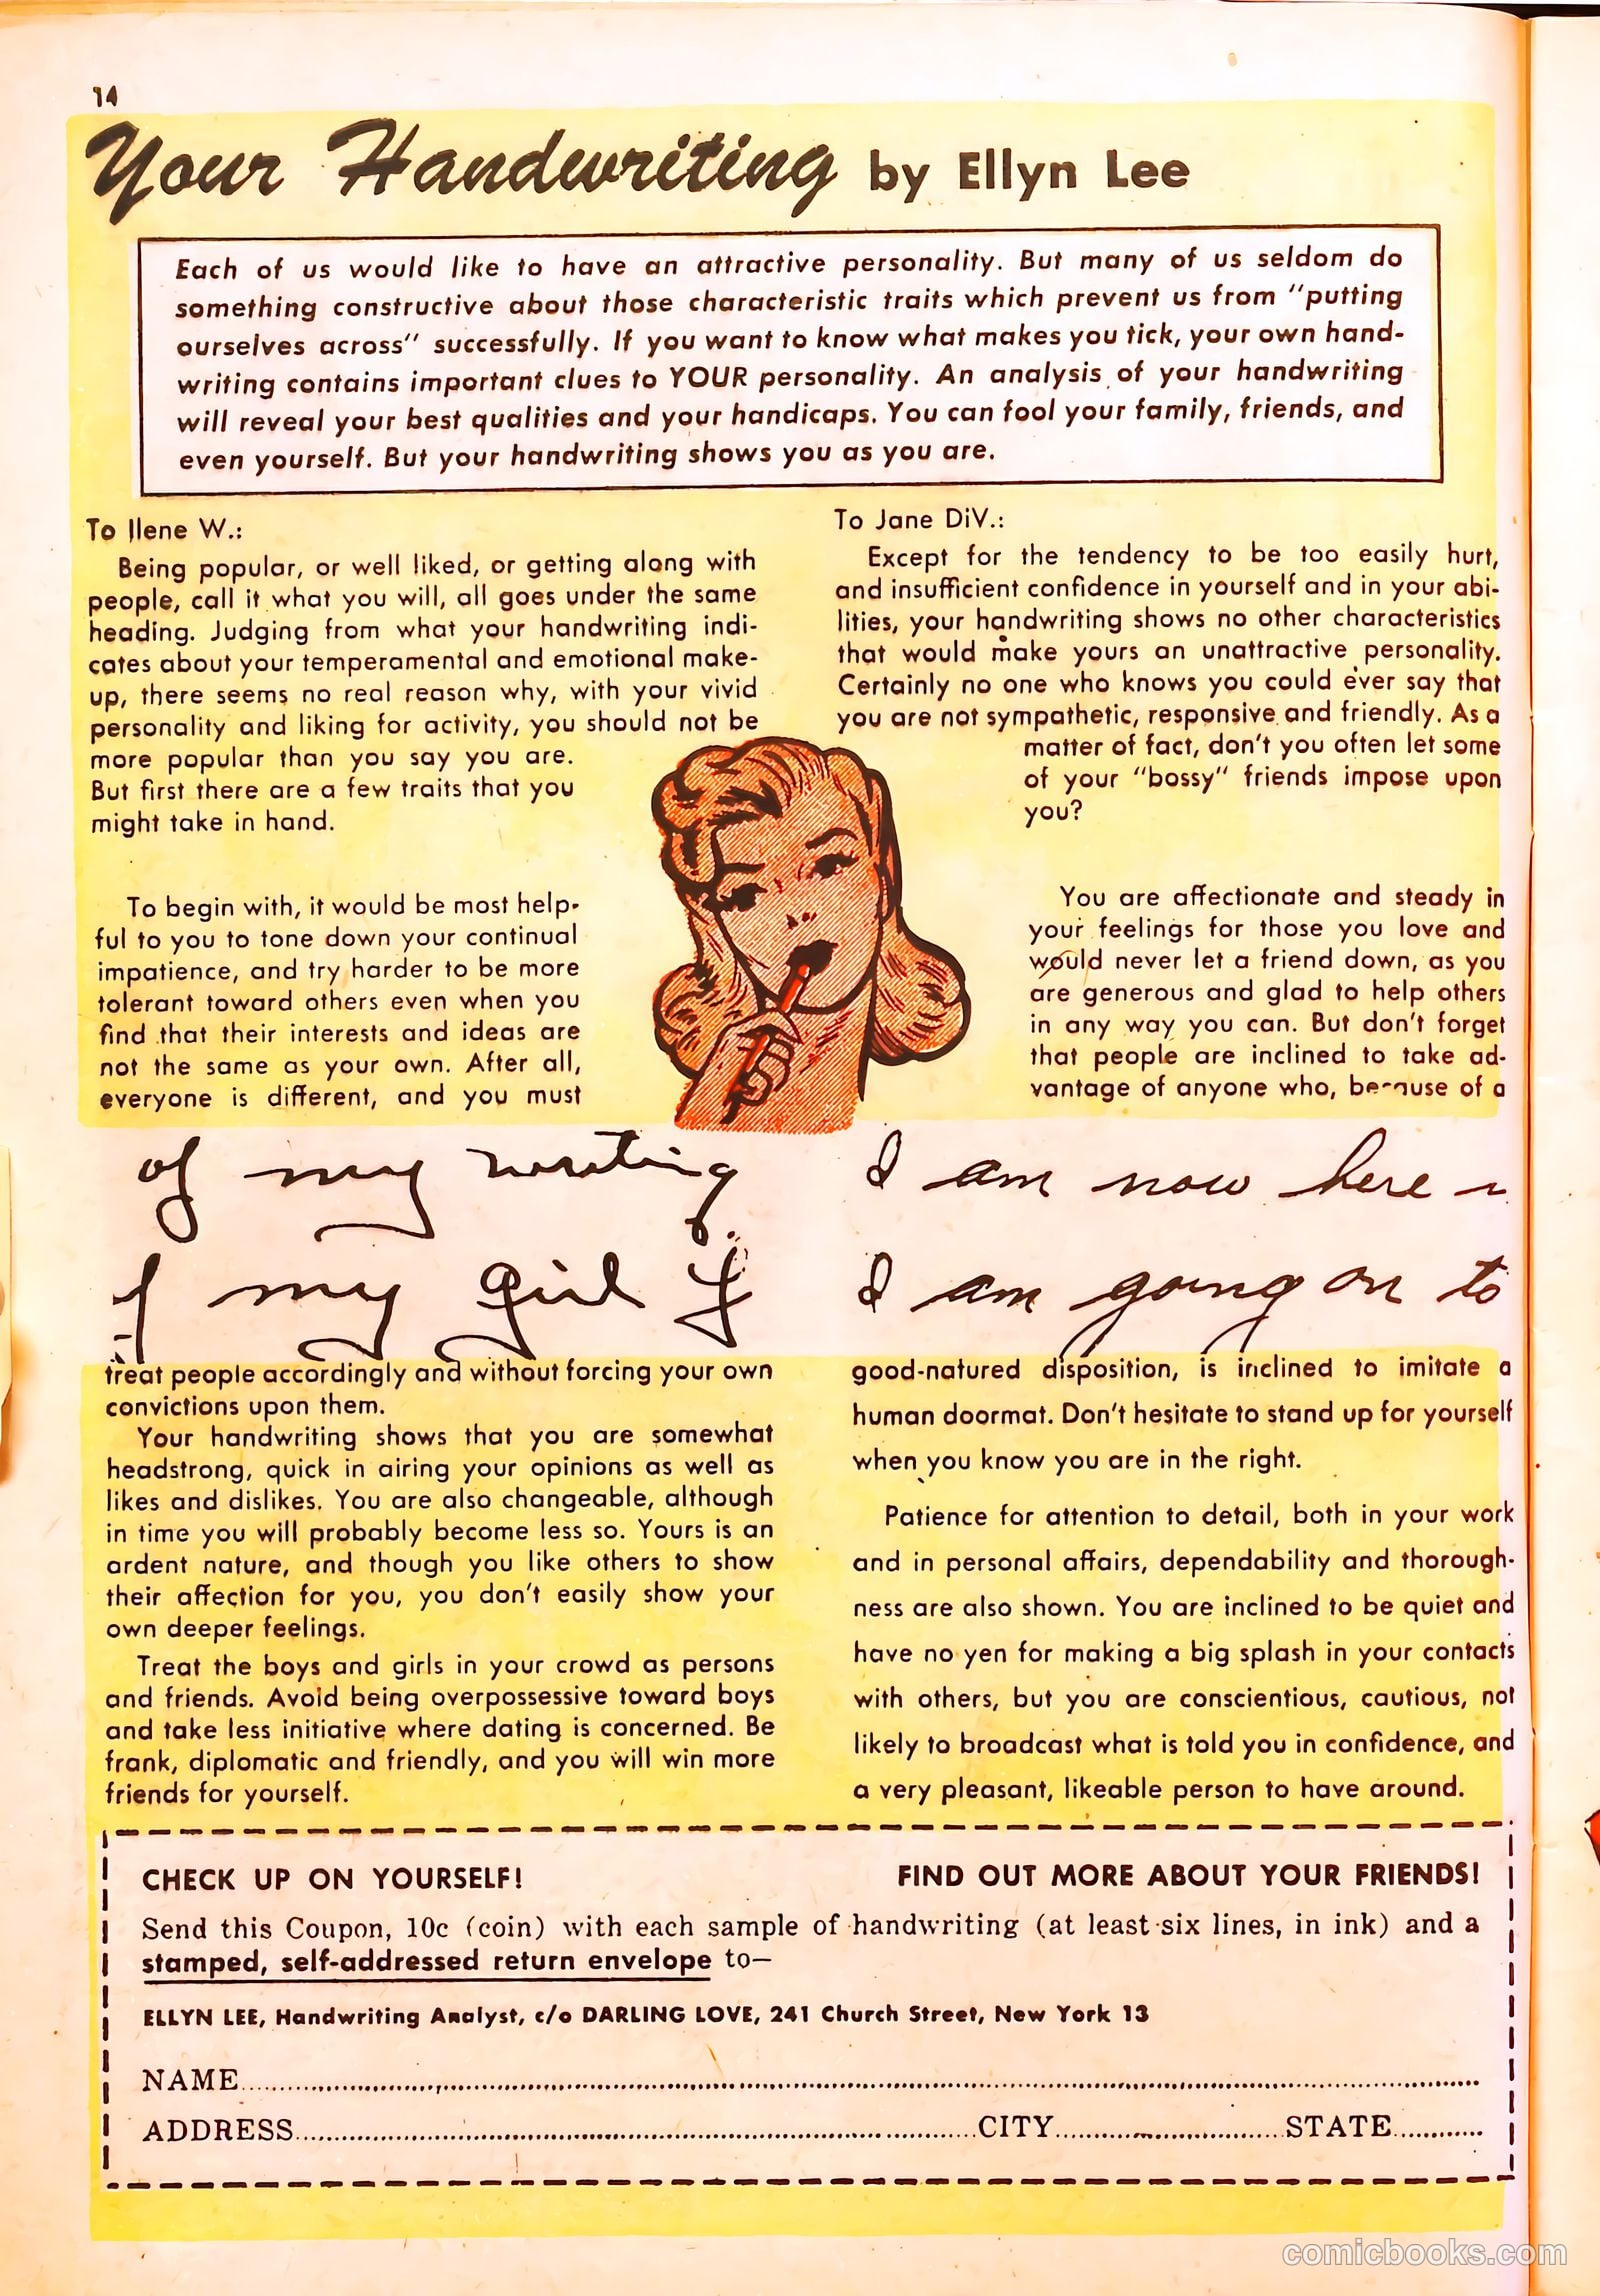 14
Your Handwriting by Ellyn Lee
Each of us would like to have an attractive personality. But many of us seldom do
something constructive about those characteristic traits which prevent us from "putting
ourselves across" successfully. If you want to know what makes you tick, your own hand-
writing contains important clues to YOUR personality. An analysis of your handwriting
will reveal your best qualities and your handicaps. You can fool your family, friends, and
even yourself. But your handwriting shows you as you are.
To Ilene W.:
Being popular, or well liked, or getting along with
people, call it what you will, all goes under the same
heading. Judging from what your handwriting indi-
cates about your temperamental and emotional make-
up, there seems no real reason why, with your vivid
personality and liking for activity, you should not be
more popular than you say you are.
But first there are a few traits that you
might take in hand.
To begin with, it would be most help-
ful to you to tone down your continual
impatience, and try harder to be more
tolerant toward others even when you
find that their interests and ideas are
not the same as your own. After all,
everyone is different, and you must
of my writing
my girl
treat people accordingly and without forcing your own
convictions upon them.
Your handwriting shows that you are somewhat
headstrong, quick in airing your opinions as well as
likes and dislikes. You are also changeable, although
in time you will probably become less so. Yours is an
ardent nature, and though you like others to show
their affection for you, you don't easily show your
own deeper feelings.
Treat the boys and girls in your crowd as persons
and friends. Avoid being overpossessive toward boys
and take less initiative where dating is concerned. Be
frank, diplomatic and friendly, and you will win more
friends for yourself.
To Jane DiV.:
Except for the tendency to be too easily hurt,
and insufficient confidence in yourself and in your abi-
lities, your handwriting shows no other characteristics
that would make yours an unattractive personality.
Certainly no one who knows you could ever say that
you are not sympathetic, responsive and friendly. As a
matter of fact, don't you often let some
of your "bossy" friends impose upon
you?
You are affectionate and steady in
your feelings for those you love and
would never let a friend down, as you
are generous and glad to help others
in any way you can. But don't forget
that people are inclined to take ad-
vantage of anyone who, because of a
I am now here
I am going on to
good-natured disposition, is inclined to imitate a
human doormat. Don't hesitate to stand up for yourself
when you know you are in the right.
Patience for attention to detail, both in your work
and in personal affairs, dependability and thorough-
ness are also shown. You are inclined to be quiet and
have no yen for making a big splash in your contacts
with others, but you are conscientious, cautious, not
likely to broadcast what is told you in confidence, and
a very pleasant, likeable person to have around.
CHECK UP ON YOURSELF! FIND OUT MORE ABOUT YOUR FRIENDS!
Send this Coupon, 10c (coin) with each sample of handwriting (at least six lines, in ink) and a
stamped, self-addressed return envelope to—
ELLYN LEE, Handwriting Analyst, c/o DARLING LOVE, 241 Church Street, New York 13
NAME
ADDRESS CITY STATE
comicbooks.com